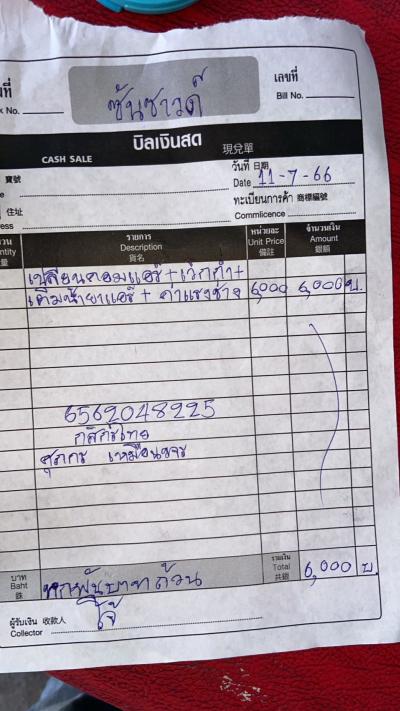 ที่
k No.
ซันซาวด์
เลขที่
Bill No.
บิลเงินสด
現兌單
CASH SALE
寶號
e
วันที่ 日期
Date 11-7-66
住址
ess
ทะเบียนการค้า 商標編號
Commlicence
วน
ntity
量
รายการ
Description
貨名
หน่วยละ
Unit Price
備註
จำนวนเงิน
Amount
銀額
เปลี่ยนคอมแอร์+เวิคกำ+
เติมน้ำยาแอร์ + ค่าแรงช่าง 6,000 6,000 บ.
6562048225
กสิกรไทย
ศุภกร เหมือนขจร
บาท
Baht
銖
หกพันบาทถ้วน
รวมเงิน
Total
共銀
6,000 บ.
ผู้รับเงิน 收款人
Collector
โจ้